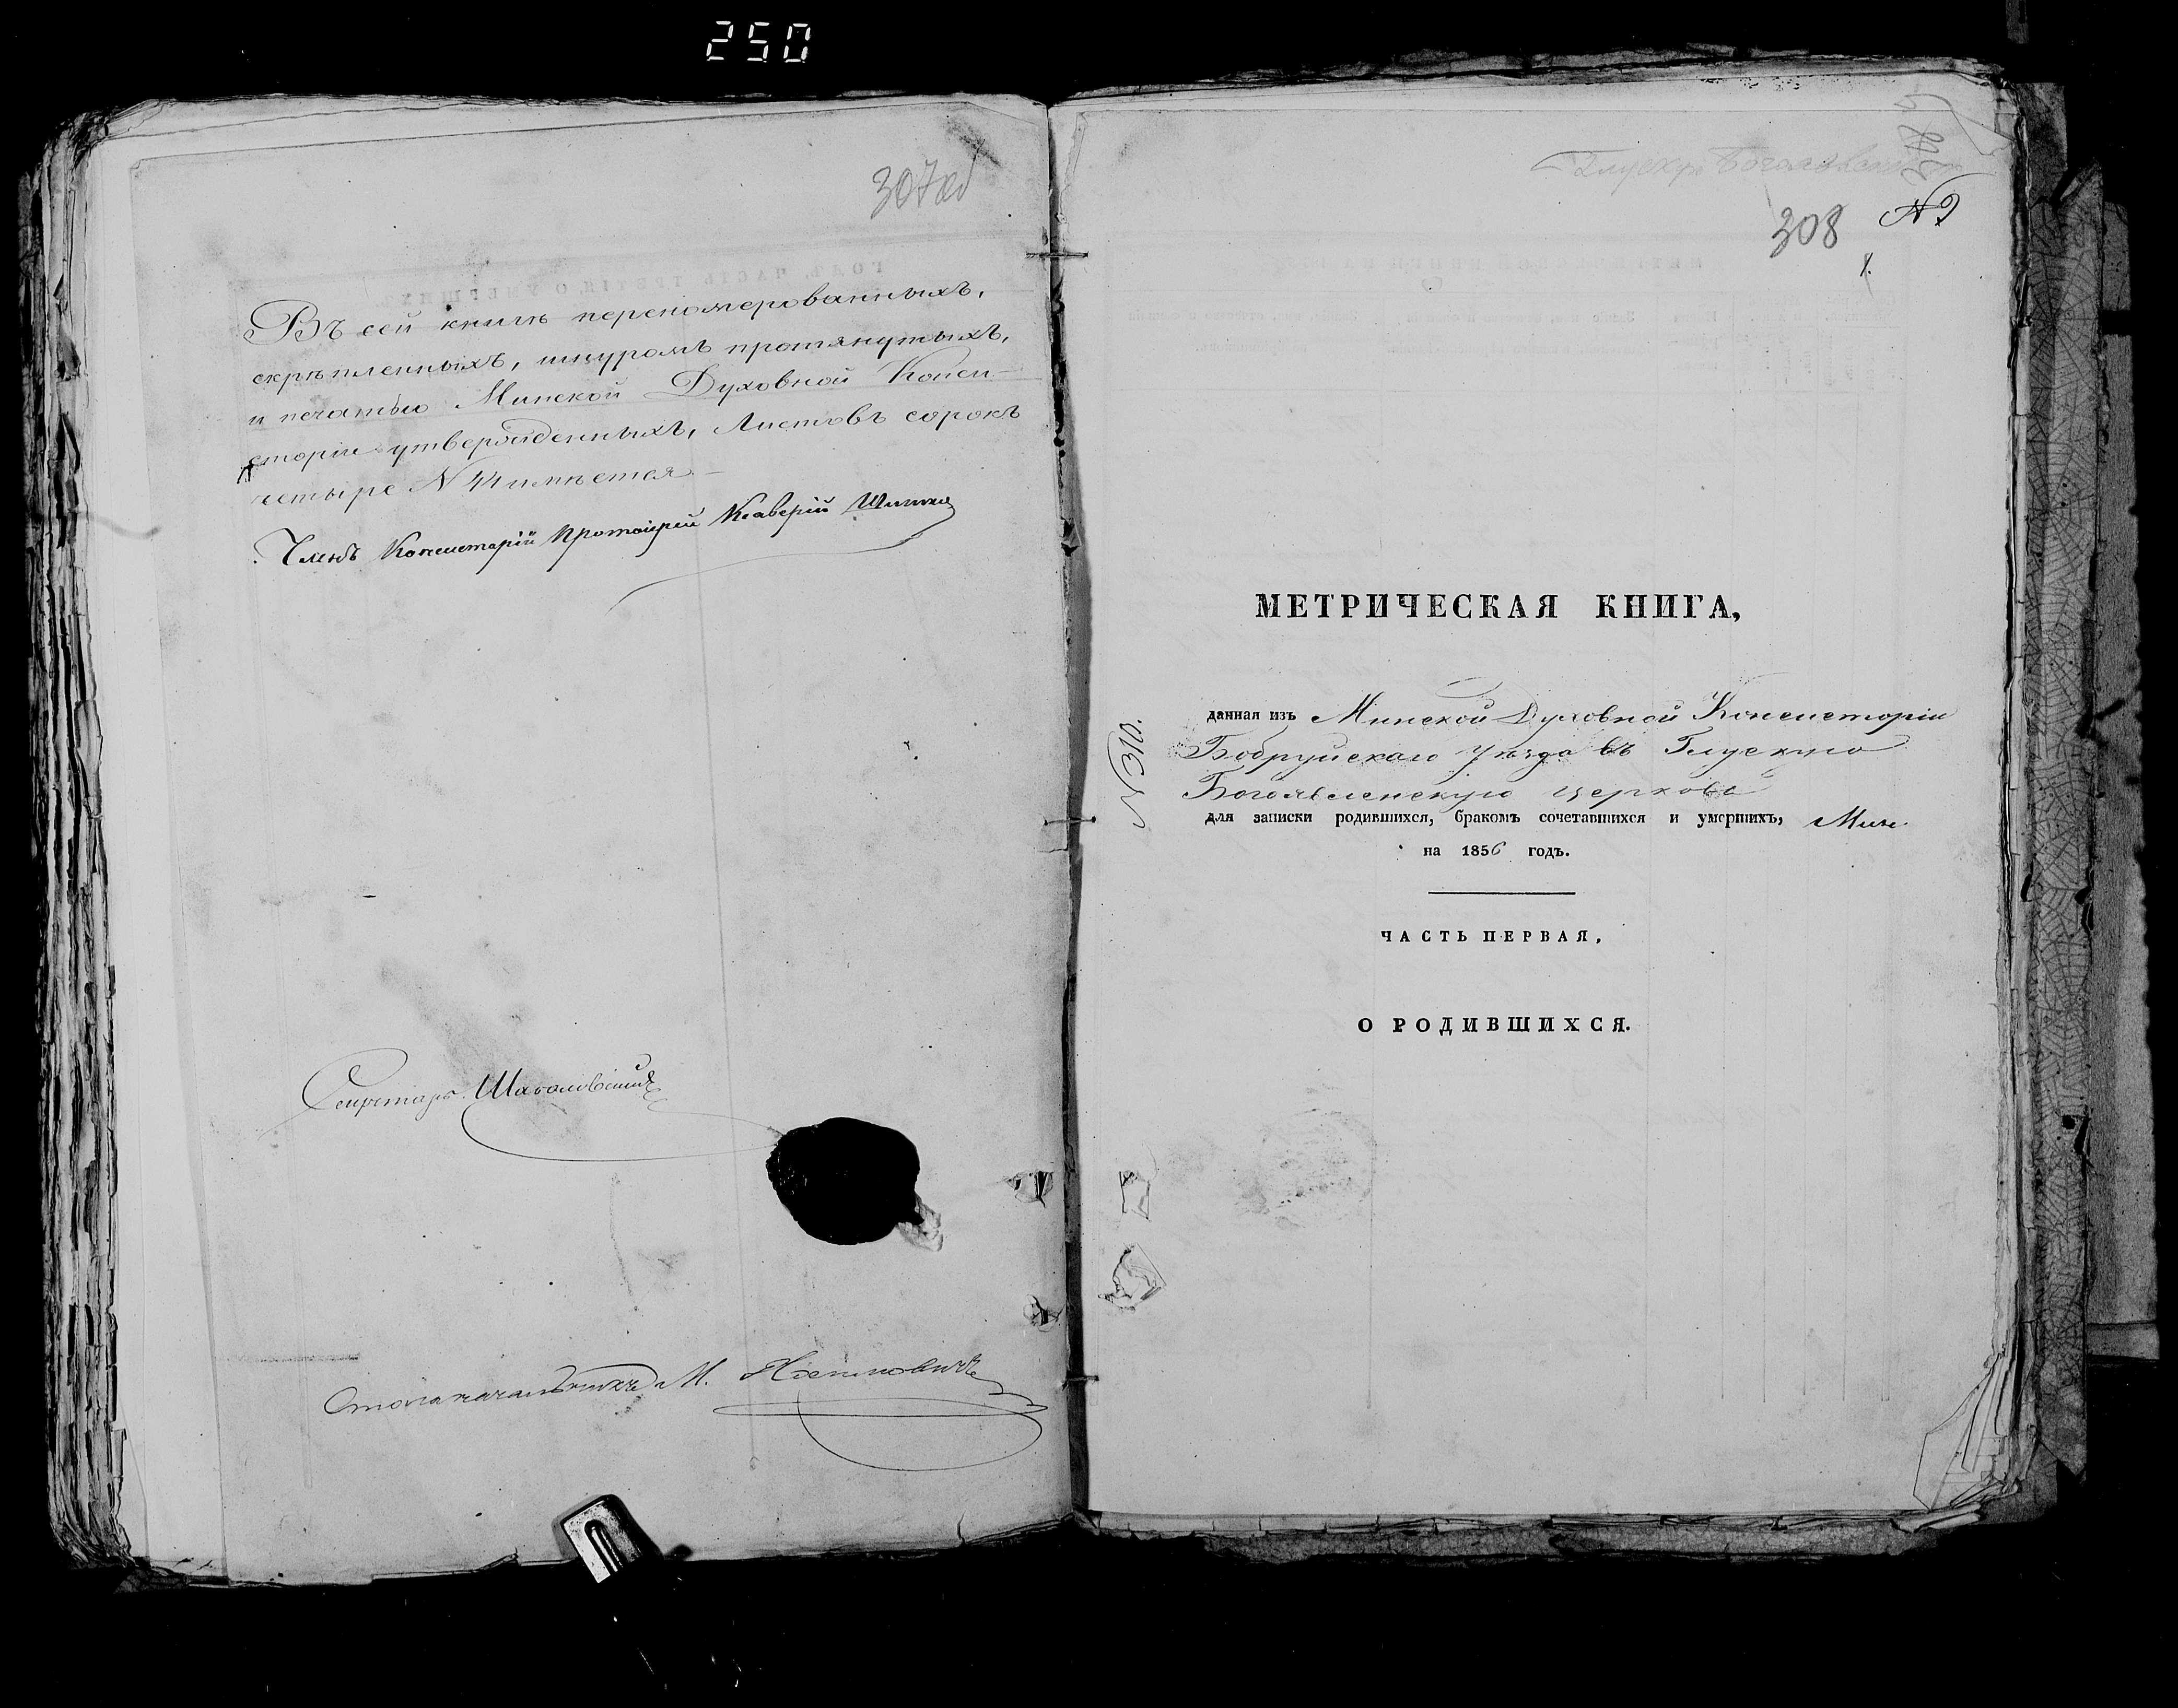 250
307об
Въ сей книгѣ переномерованныхъ,
скрѣпленныхъ, шнуромъ протянутыхъ,
и печатью Минской Духовной Конси-
сторіи утвержденныхъ, листовъ сорокъ
четыре N 44 имѣется
Членъ Консисторіи Протоіерей Ксаверій
Секретарь
Столоначальникъ М.
308
1.
N 310.
МЕТРИЧЕСКАЯ КНИГА,
данная изъ Минской Духовной Консисторіи
Бобруйскаго уѣзда въ Глускую
Богоявленскую церковь
для записки родившихся, бракомъ сочетавшихся и умершихъ,
на 1856 годъ.
ЧАСТЬ ПЕРВАЯ,
О РОДИВШИХСЯ.